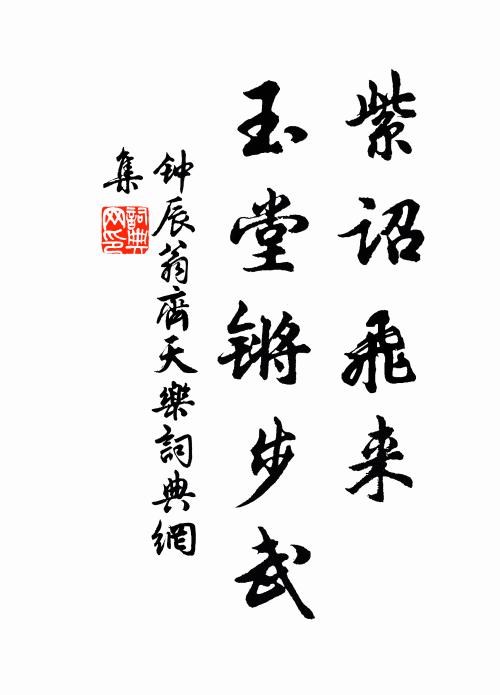 紫詔飛来
玉堂鏘步武
钟辰翁齊天樂詞典網
集
詞典
网印